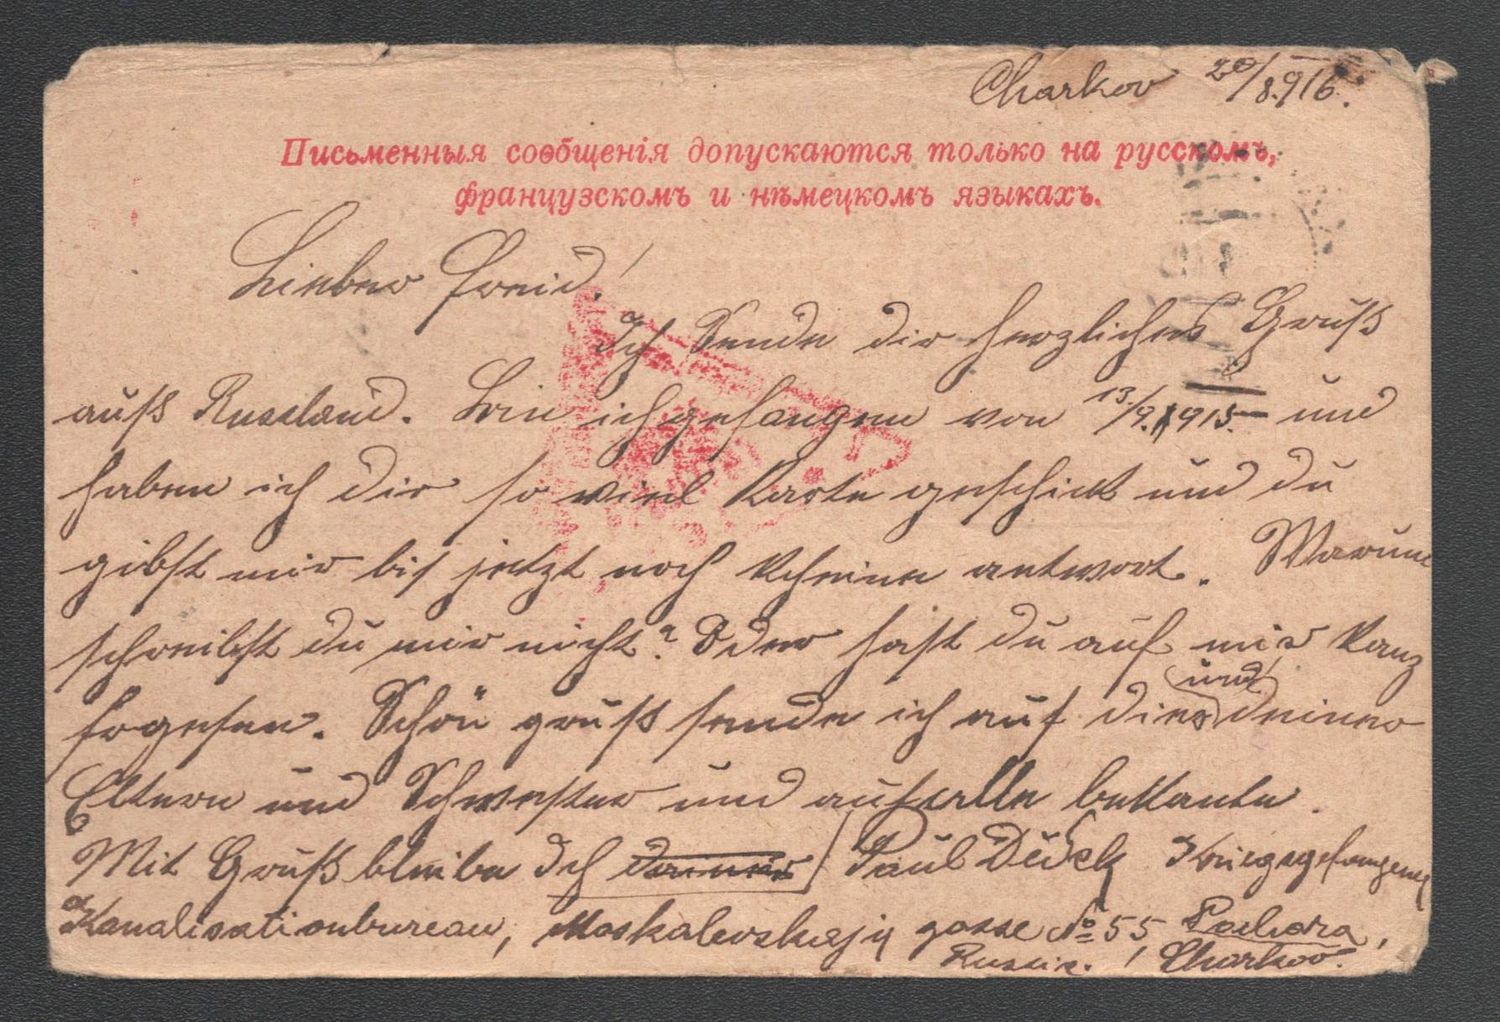 Charkov 20/8.916.
Письменныя сообщенія допускаются только на русскомъ,
французскомъ и нѣмецкомъ языкахъ.
Lieber Freid!
Ich Sende dir herzliches Gruß
auß Russland. Bin ich gefangen von 13./9.1915 und
haben ich dir so viel Karte geschickt und du
gibst mir bis jetzt noch kheine antwort. Warum
schreibst du mir nicht? Oder hast du auf mir kanz
fogesen. Schön gruß sende ich auf dier und deiner
Eltern und Schwester und auf alle bekante.
Mit Gruß bleibe Ich Paul Dudek Kriegsgefangener
Kanalisationbureau, Moskalevskaja gasse № 55
Russie. Charkov.